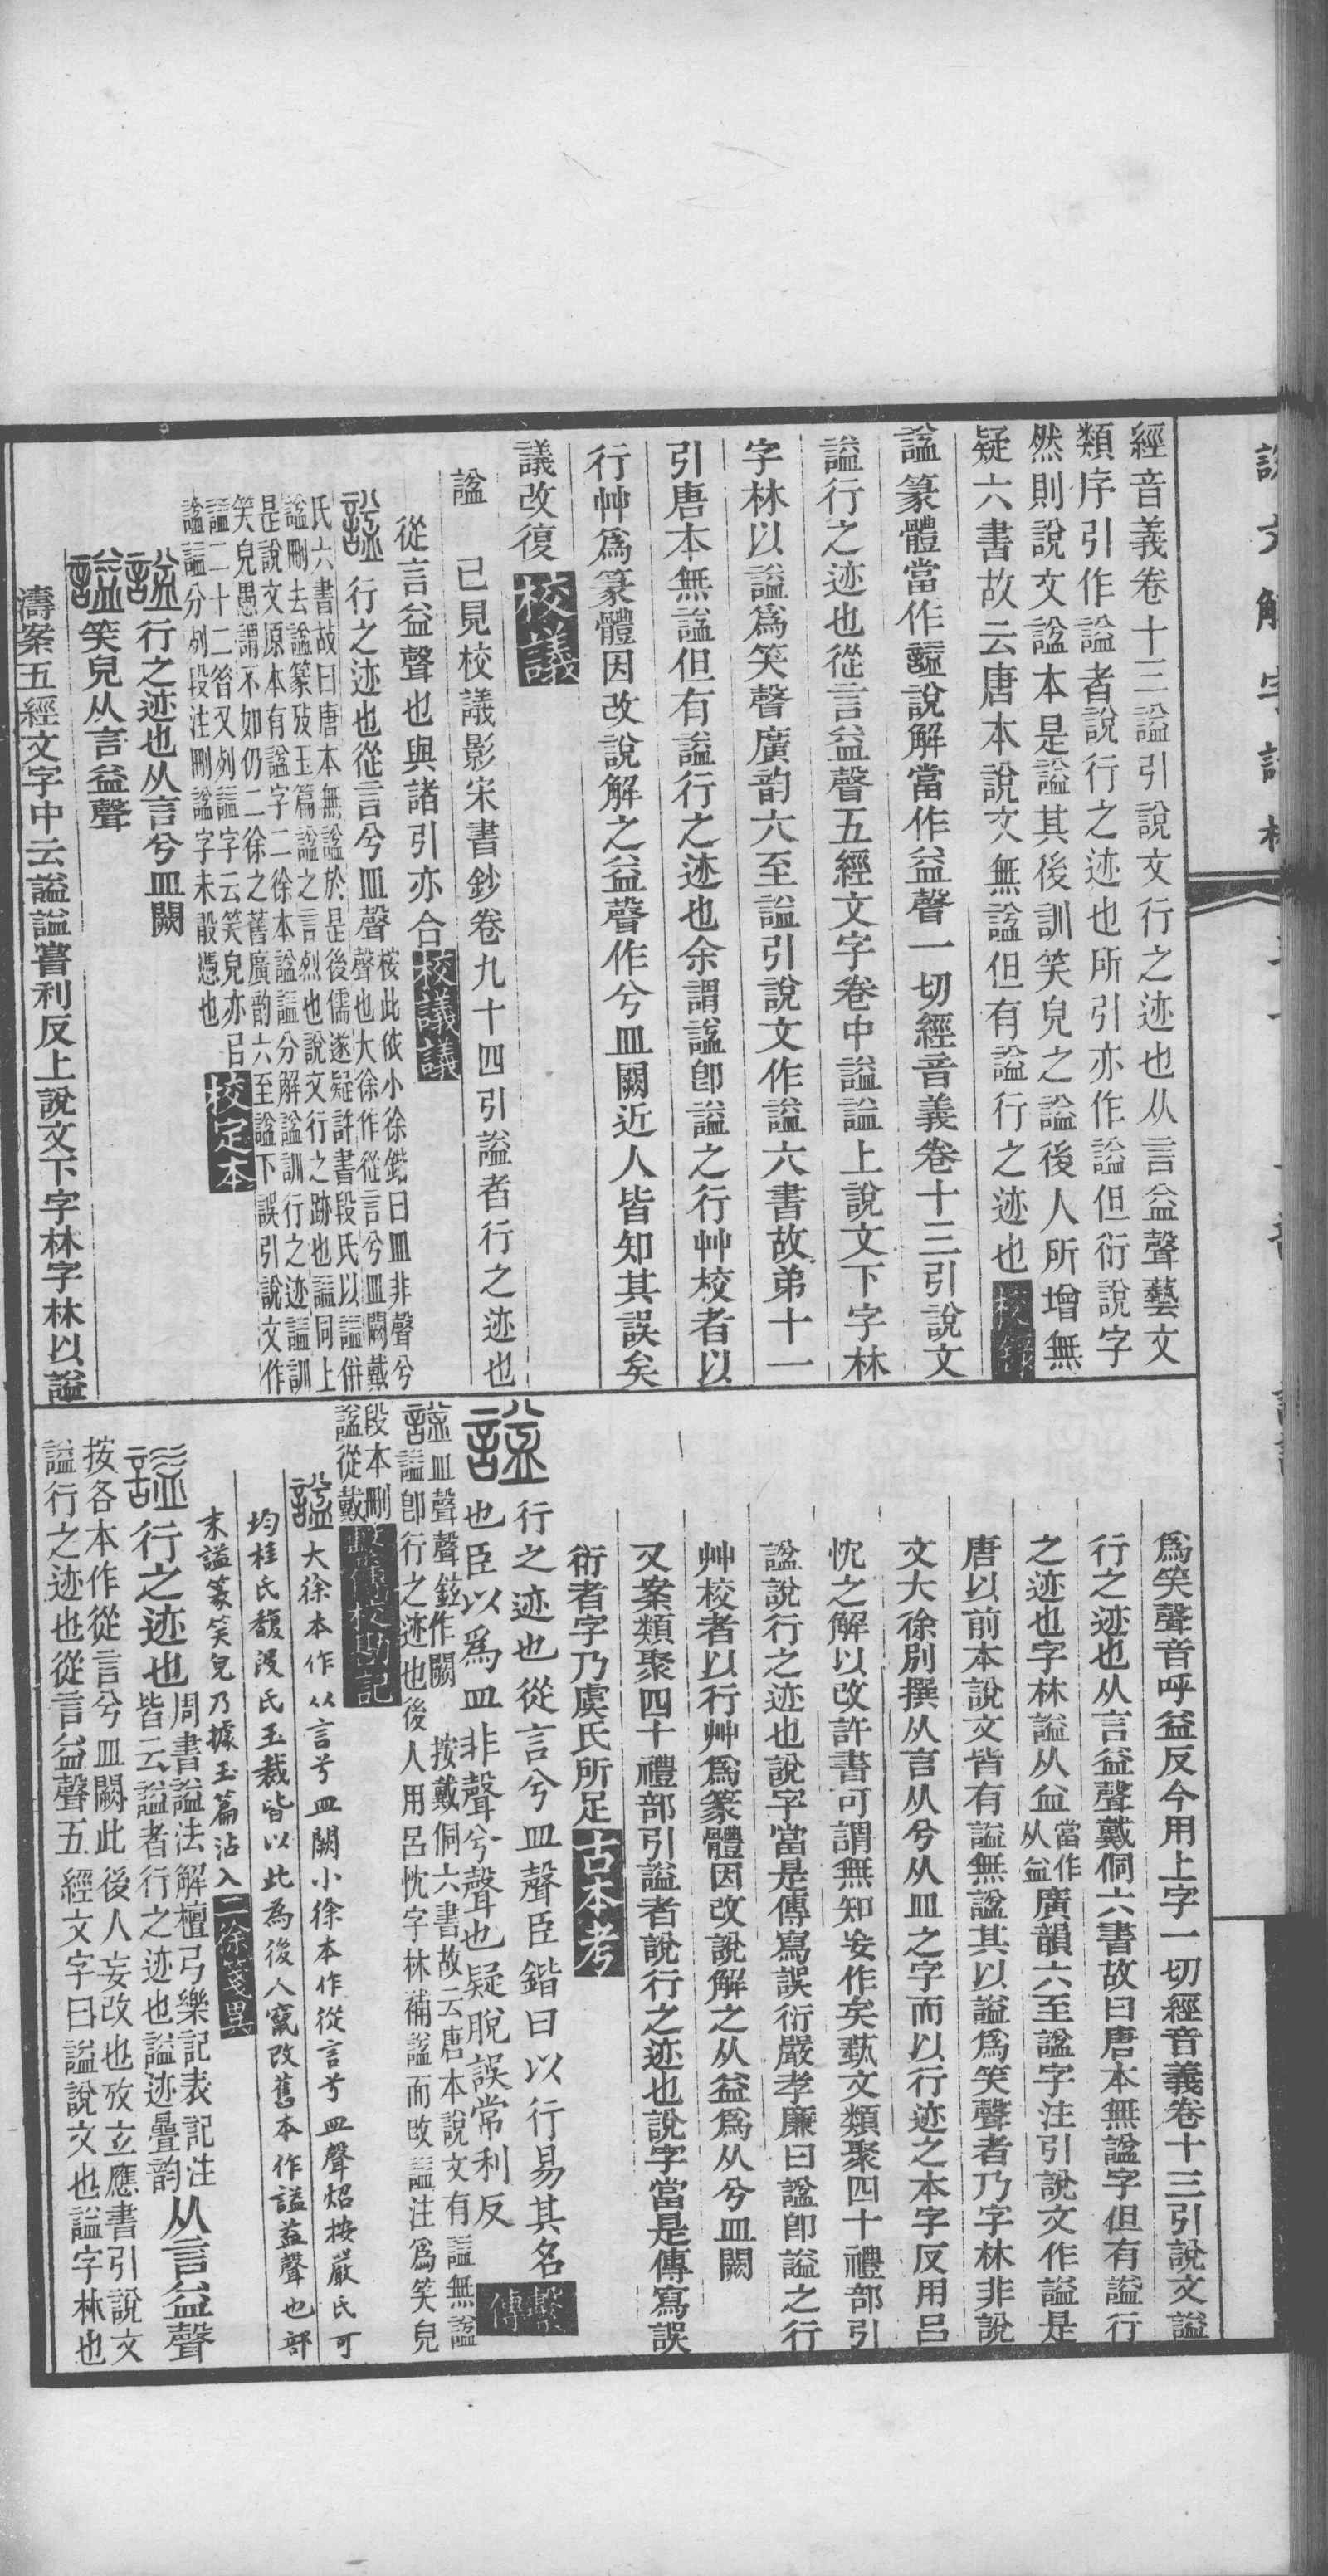 經音義卷十三謚引說文行之迹也从言益聲藝文
類序引作謚者說行之迹也所引亦作謚但衍說字
然則說文諡本是謚其後訓笑皃之謚後人所增無
疑六書故云唐本說文無諡但有謚行之迹也校錄
諡篆體當作謚說解當作益聲一切經音義卷十三引說文
謚行之迹也從言益聲五經文字卷中謚諡上說文下字林
字林以謚爲笑聲廣韵六至諡引說文作謚六書故弟十一
引唐本無諡但有謚行之迹也余謂諡卽謚之行艸校者以
行艸爲篆體因改說解之益聲作兮皿闕近人皆知其誤矣
議改復校議
諡
已見校議影宋書鈔卷九十四引謚者行之迹也
從言益聲也與諸引亦合校議議
諡行之迹也從言兮皿聲
桉此依小徐鍇曰皿非聲兮
聲也大徐作從言兮皿闕戴
氏六書故曰唐本無諡於是後儒遂疑許書段氏以謚併
諡刪去諡篆攷玉篇諡之言烈也說文行之跡也謚同上
是說文原本有諡字二徐本諡謚分解諡訓行之迹謚訓
笑皃愚謂不如仍二徐之舊廣韵六至諡下誤引說文作
謚二十二昝又列謚字云笑皃亦
諡謚分列段注刪諡字未㲉憑也校定本
諡行之迹也从言兮皿闕
謚笑皃从言益聲
濤案五經文字中云諡謚眘利反上說文下字林字林以謚
爲笑聲音呼益反今用上字一切經音義卷十三引說文謚
行之迹也从言益聲戴侗六書故曰唐本無諡字但有謚行
之迹也字林謚从益當作从益廣韻六至諡字注引說文作謚是
唐以前本說文皆有謚無諡其以謚爲笑聲者乃字林非說
文大徐別撰从言从兮从皿之字而以行迹之本字反用呂
忱之解以改許書可謂無知妄作矣蓺文類聚四十禮部引
諡說行之迹也說字當是傳寫誤衍嚴孝廉曰諡卽謚之行
艸校者以行艸爲篆體因改說解之从益爲从兮皿闕
又案類聚四十禮部引謚者說行之迹也說字當是傳寫誤
衍者字乃虞氏所足古本考
諡行之迹也從言兮皿聲臣鍇曰以行易其名
也臣以爲皿非聲兮聲也疑脫誤常利反繫傳
諡皿聲聲鉉作闕
按戴侗六書故云唐本說文有謚無諡
謚卽行之迹也後人用呂忱字林補諡而改謚注爲笑皃
段本刪
諡從戴繫傳校勘記
諡大徐本作从言兮皿闕小徐本作從言兮皿聲炤按嚴氏可
均桂氏馥段氏玉裁皆以此為後人竄改舊本作謚益聲也部
末謚篆笑皃乃據玉篇沾入二徐箋異
謚行之迹也
周書謚法解檀弓樂記表記注
皆云謚者行之迹也謚迹疊韵从言益聲
按各本作從言兮皿闕此後人妄改也攷立應書引說文
謚行之迹也從言益聲五經文字曰謚說文也諡字林也